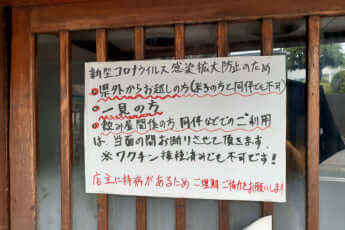 新型コロナウイルス感染拡大防止のため
●県外からお越しの方(米子の方と同伴でも不可)
●一見の方
●飲み屋関係の方、同伴などでのご利用
は、当面の間お断りさせて頂きます。
※ワクチン接種済みでも不可です!
店主に持病があるため ご理解ご協力をお願いします